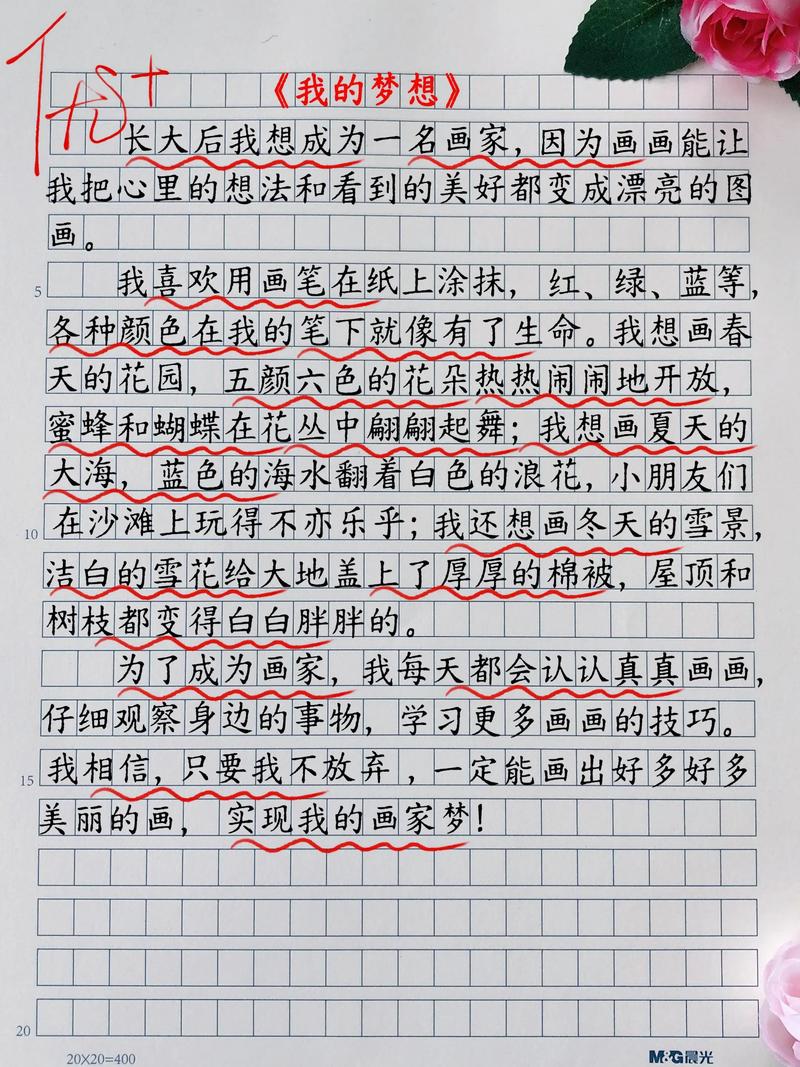 优+
《我的梦想》
长大后我想成为一名画家，因为画画能让
我把心里的想法和看到的美好都变成漂亮的图
画。
5
我喜欢用画笔在纸上涂抹，红、绿、蓝等，
各种颜色在我的笔下就像有了生命。我想画春
天的花园，五颜六色的花朵热热闹闹地开放，
蜜蜂和蝴蝶在花丛中翩翩起舞；我想画夏天的
大海，蓝色的海水翻着白色的浪花，小朋友们
10
在沙滩上玩得不亦乐乎；我还想画冬天的雪景，
洁白的雪花给大地盖上了厚厚的棉被，屋顶和
树枝都变得白白胖胖的。
为了成为画家，我每天都会认认真真画画，
仔细观察身边的事物，学习更多画画的技巧。
15
我相信，只要我不放弃，一定能画出好多好多
美丽的画，实现我的画家梦！
20
20X20=400
M&G晨光